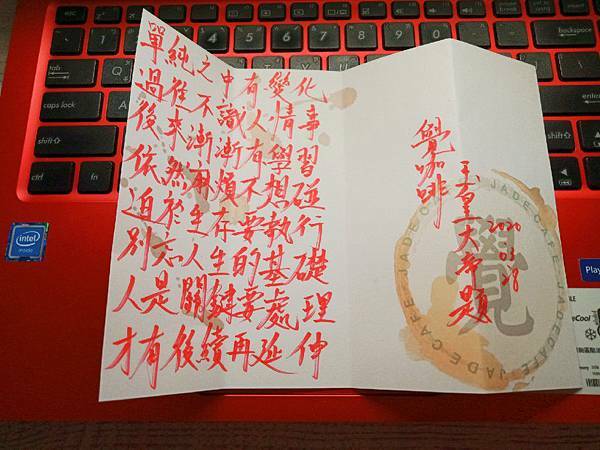 單純之中有變化
過往不識人情事
後來漸漸有學習
依然煩不想碰
迫於生存要執行
別忘人生的基礎
人是關鍵要處理
才有後續再延伸
覺咖啡
玉皇大帝題
2020
03
28
覺
JADE CAFE JADE CAFE JADE CAFE
caps lock
shift
ctrl
fn
intel
enter
shift
ctrl